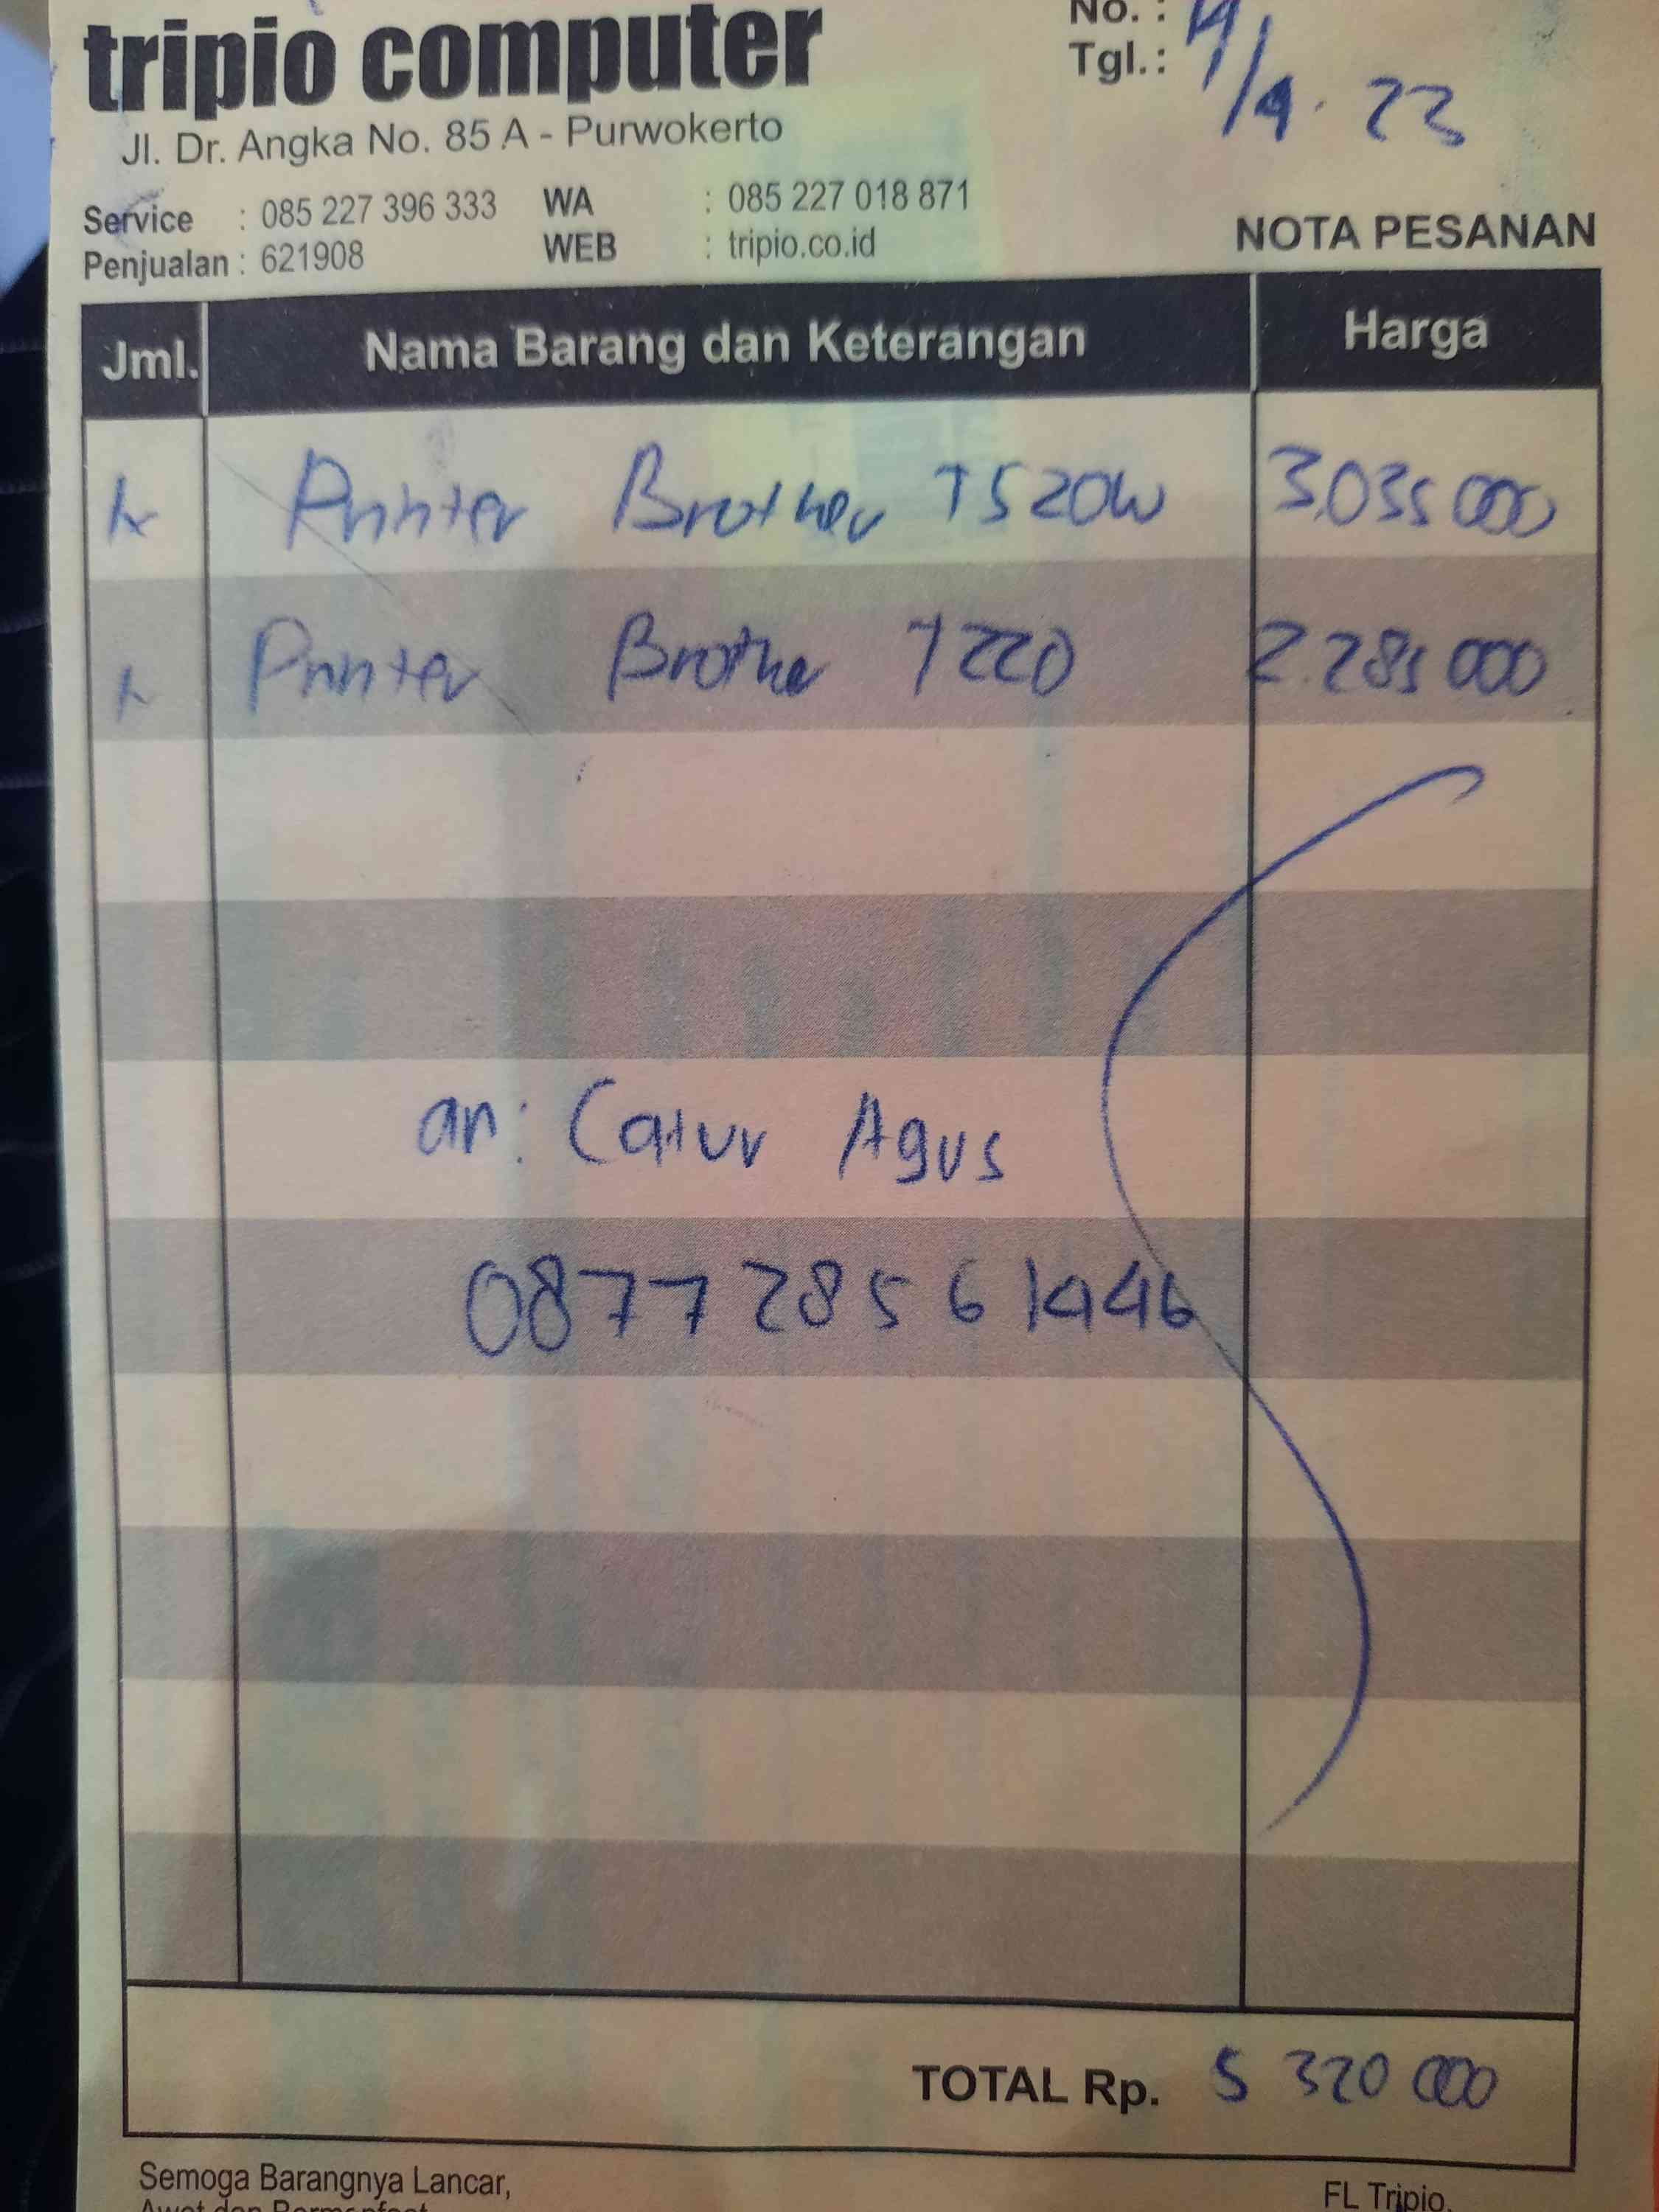 tripio computer
No. :
Tgl. : 14/9. 23
Jl. Dr. Angka No. 85 A - Purwokerto
Service : 085 227 396 333 WA : 085 227 018 871
Penjualan : 621908 WEB : tripio.co.id
NOTA PESANAN
Jml. Nama Barang dan Keterangan Harga
1x Printer Brother T520W 3.035 000
1x Printer Brother T220 2.285 000
an: Catur Agus
0877 285 6 1446
TOTAL Rp. 5 320 000
Semoga Barangnya Lancar,
Awet dan Bermanfaat
FL Tripio.